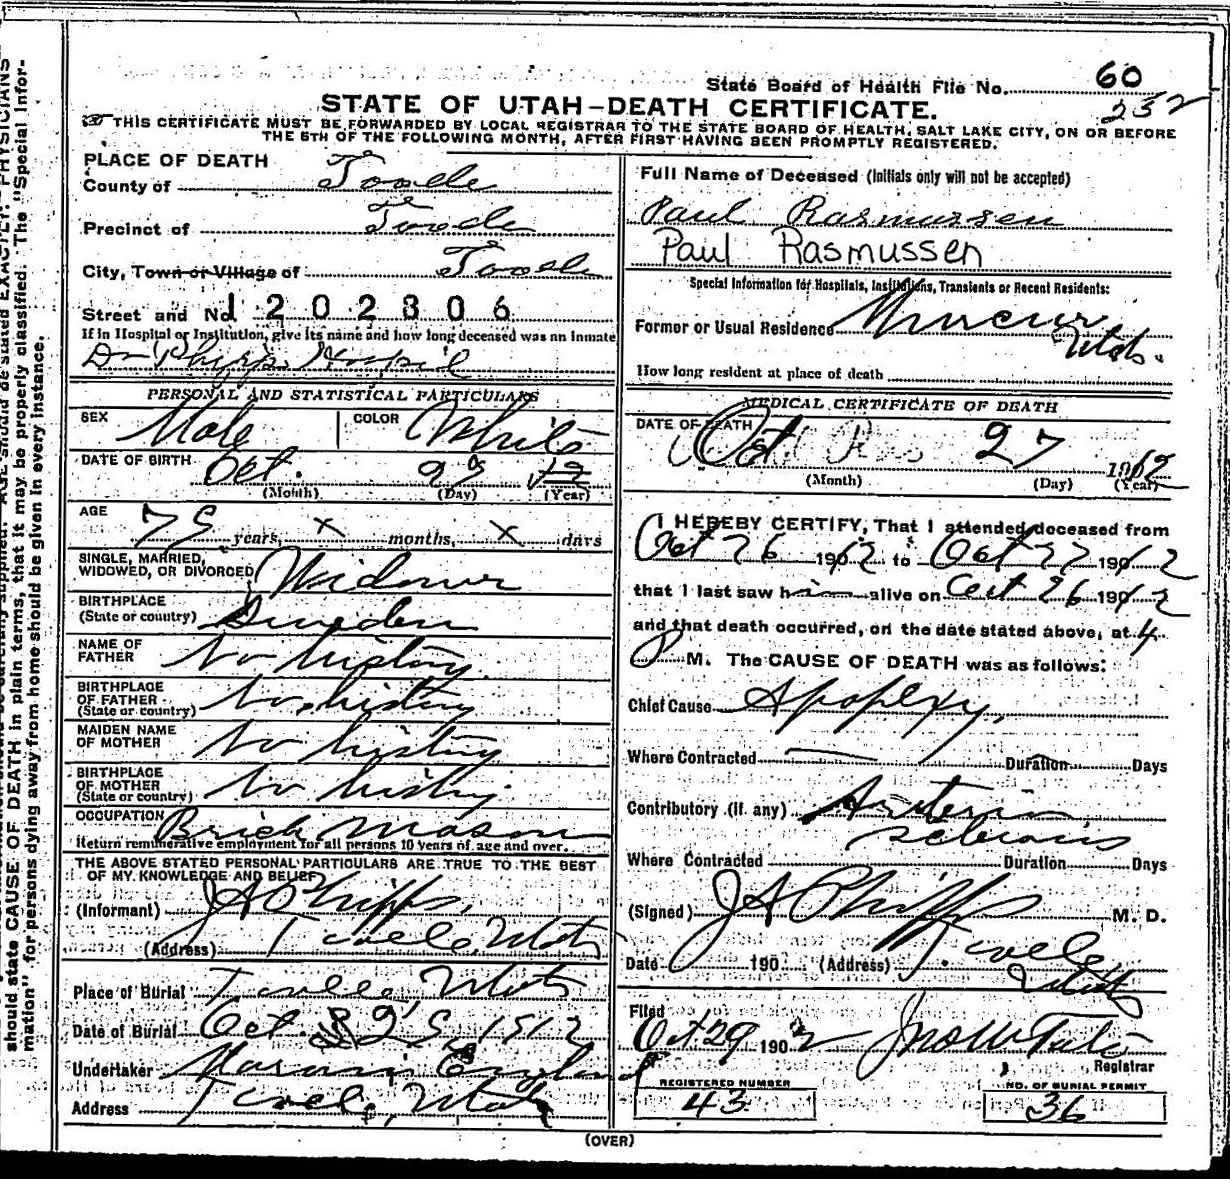 State Board of Health File No. 60
232
STATE OF UTAH–DEATH CERTIFICATE.
THIS CERTIFICATE MUST BE FORWARDED BY LOCAL REGISTRAR TO THE STATE BOARD OF HEALTH, SALT LAKE CITY, ON OR BEFORE
THE 5TH OF THE FOLLOWING MONTH, AFTER FIRST HAVING BEEN PROMPTLY REGISTERED.
PLACE OF DEATH
County of Tooele
Precinct of Tooele
City, Town or Village of Tooele
Street and No. 1202806
If in Hospital or Institution, give its name and how long deceased was an inmate
Dr Phipps Hospil
PERSONAL AND STATISTICAL PARTICULARS
SEX Male COLOR White
DATE OF BIRTH Oct. 12
(Month) (Day) (Year)
AGE
75 years, x months, x days
SINGLE, MARRIED,
WIDOWED, OR DIVORCED Widower
BIRTHPLACE
(State or country) Sweden
NAME OF
FATHER No history
BIRTHPLACE
OF FATHER
(State or country) No history
MAIDEN NAME
OF MOTHER No history
BIRTHPLACE
OF MOTHER
(State or country) No history
OCCUPATION Brick Mason
Return remunerative employment for all persons 10 years of age and over.
THE ABOVE STATED PERSONAL PARTICULARS ARE TRUE TO THE BEST
OF MY KNOWLEDGE AND BELIEF
(Informant) J A Phipps,
(Address) Tooele, Utah
Place of Burial Tooele, Utah
Date of Burial Oct. 29, 1912
Undertaker England
Address Tooele, Utah
Full Name of Deceased (Initials only will not be accepted)
Paul Rasmussen
Paul Rasmussen
Special Information for Hospitals, Institutions, Transients or Recent Residents:
Former or Usual Residence Mercur
Utah.
How long resident at place of death
MEDICAL CERTIFICATE OF DEATH
DATE OF DEATH
Oct 27 1912
(Month) (Day) (Year)
I HEREBY CERTIFY, That I attended deceased from
Oct 26 1912 to Oct 27 1912
that I last saw him alive on Oct 26 1912
and that death occurred, on the date stated above, at 4
P M. The CAUSE OF DEATH was as follows:
Chief Cause Apoplexy,
Where Contracted Duration Days
Contributory (if any) Arterio
sclerosis
Where Contracted Duration Days
(Signed) J A Phipps M. D.
Date 190 (Address) Tooele
Utah
Filed
Oct. 29 190 2
Registrar
REGISTERED NUMBER
43
NO. OF BURIAL PERMIT
36
(OVER)
should state CAUSE OF DEATH in plain terms, that it may be properly classified. The "Special Infor-
mation" for persons dying away from home should be given in every instance.